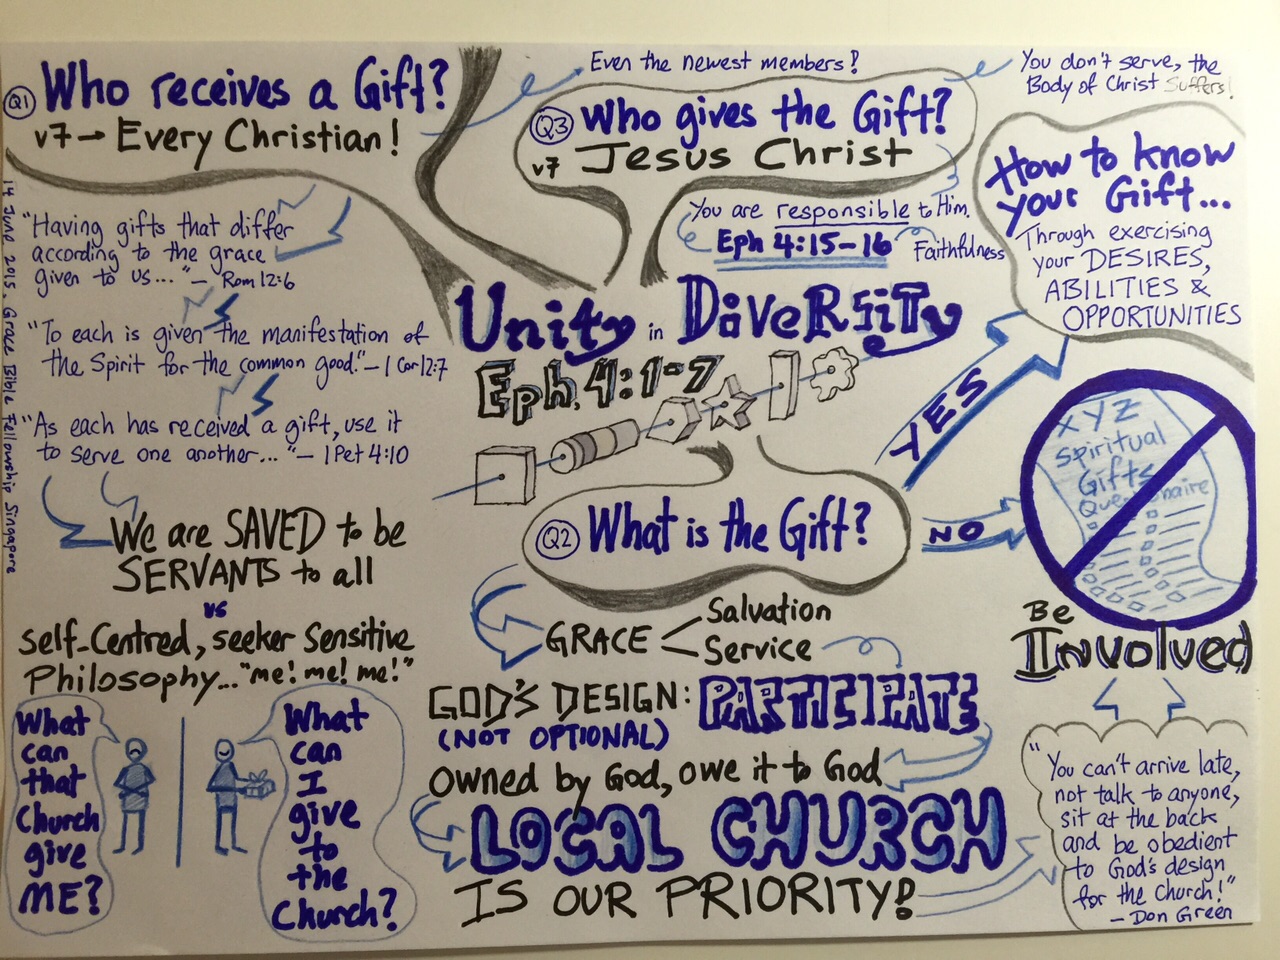 Q1 Who receives a Gift?
v7 → Every Christian!
Even the newest members!
"Having gifts that differ
according to the grace
given to us..." — Rom 12:6
"To each is given the manifestation of
the Spirit for the common good." — 1 Cor 12:7
"As each has received a gift, use it
to serve one another..." — 1 Pet 4:10
We are SAVED to be
SERVANTS to all
vs
Self-Centred, seeker Sensitive
Philosophy... "me! me! me!"
What
can
that
Church
give
ME?
What
can
I
give
to
the
Church?
14 June 2015. Grace Bible Fellowship Singapore
Q3 Who gives the Gift?
v7 Jesus Christ
You are responsible to Him.
Eph 4:15-16
Faithfulness
Unity in DiVeRSiTy
Eph. 4:1-7
Q2 What is the Gift?
GRACE
Salvation
Service
GOD'S DESIGN: PARTICIPATE
(NOT OPTIONAL)
Owned by God, owe it to God
LOCAL CHURCH
IS OUR PRIORITY!
You don't serve, the
Body of Christ Suffers!
How to know
your Gift...
Through exercising
your DESIRES,
ABILITIES &
OPPORTUNITIES
YES
NO
XYZ
Spiritual
Gifts
Be
Involved
"You can't arrive late,
not talk to anyone,
sit at the back
and be obedient
to God's design
for the Church!"
— Don Green